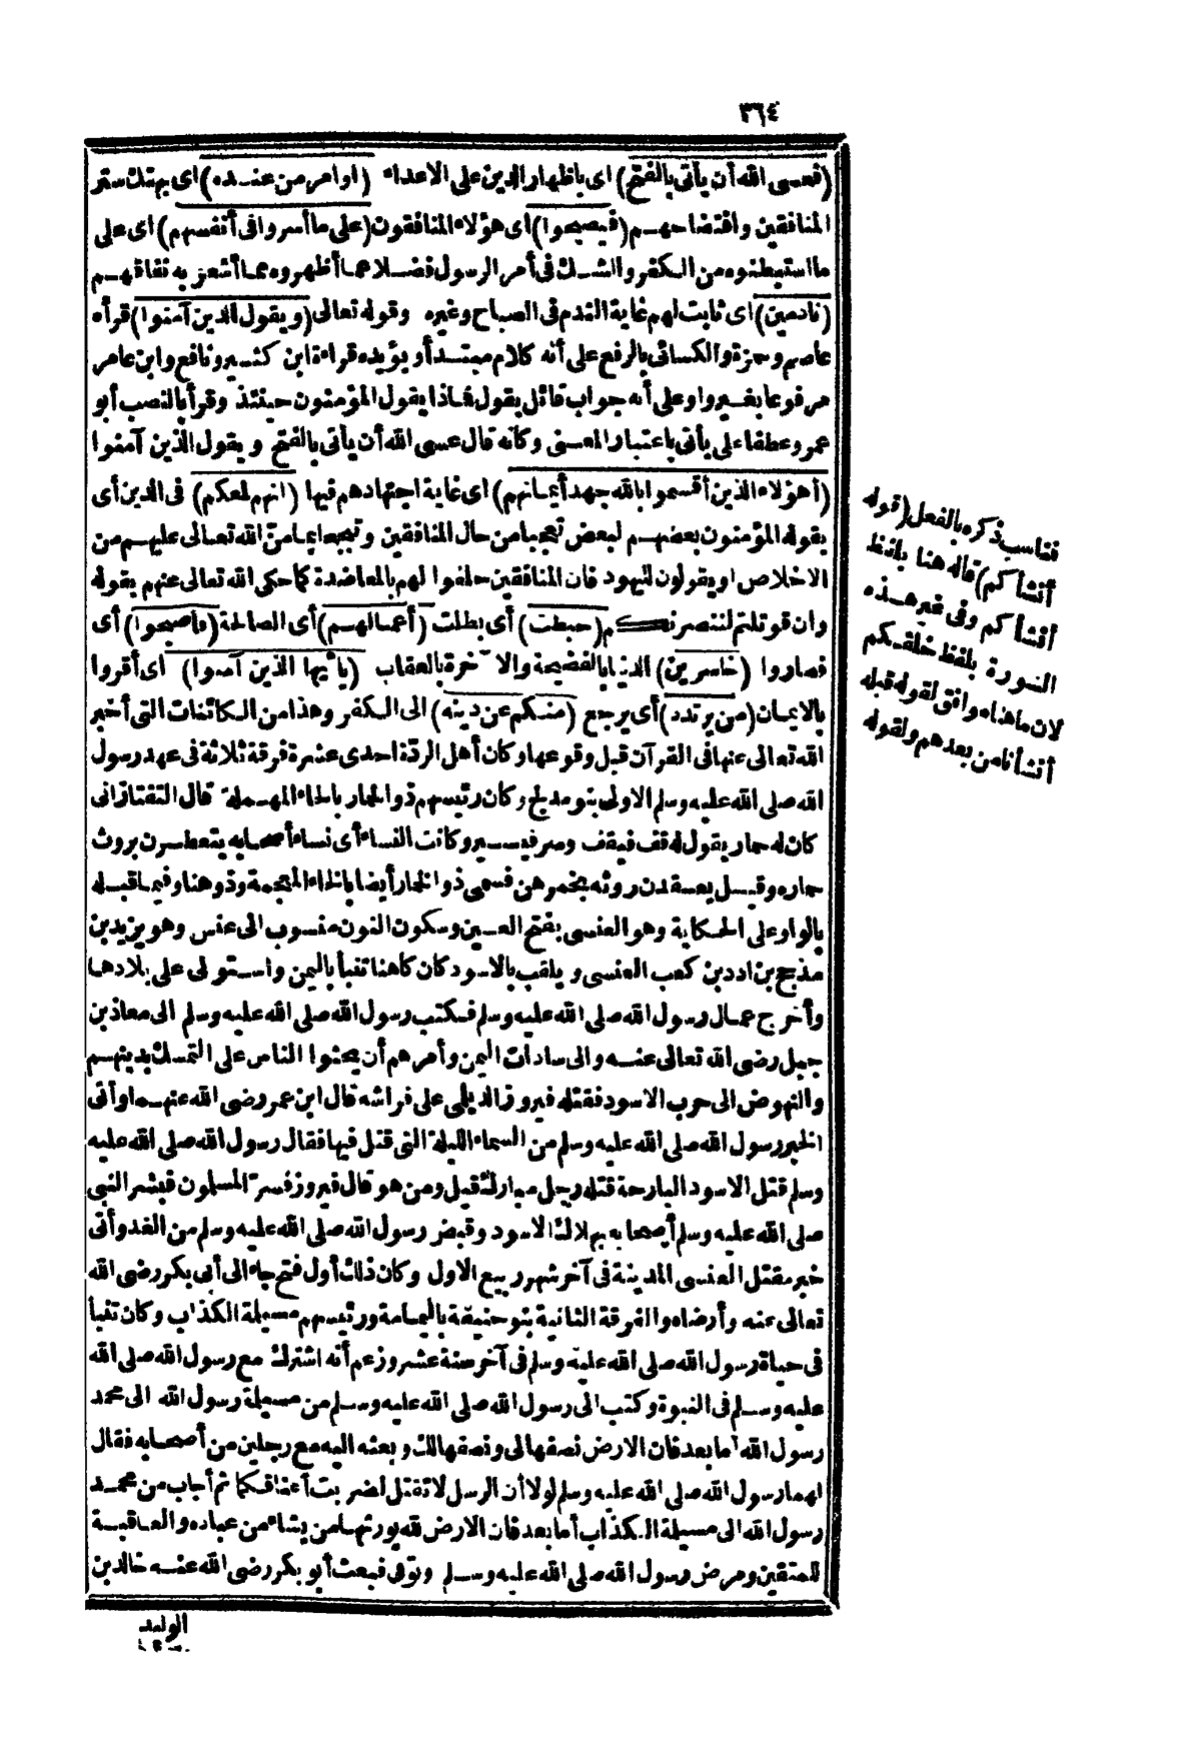 ٣٦٤
(فعسى الله أن يأتى بالفتح) اى باظهار الدين على الاعداء (أو أمر من عنده) اى بهتك ستر
المنافقين وافتضاحهم (فيصبحوا) اى هؤلاء المنافقون (على ما أسروا فى أنفسهم) اى على
ما استبطنوه من الكفر والشك فى أمر الرسول فضلا عما أظهروه مما أشعر به نفاقهم
(نادمين) اى ثابت لهم غاية الندم فى الصباح وغيره وقوله تعالى (ويقول الذين آمنوا) قرأه
عاصم وحمزة والكسائى بالرفع على أنه كلام مبتدأ ويؤيده قراءة ابن كثير ونافع وابن عامر
مرفوعا بغير واو على أنه جواب قائل يقول فماذا يقول المؤمنون حينئذ وقرأ بالنصب أبو
عمرو عطفا على يأتى باعتبار المعنى وكأنه قال عسى الله أن يأتى بالفتح ويقول الذين آمنوا
(أهؤلاء الذين أقسموا بالله جهد أيمانهم) اى غاية اجتهادهم فيها (انهم لمعكم) فى الدين أى
يقوله المؤمنون بعضهم لبعض تعجبا من حال المنافقين وتبجحا بما من الله تعالى عليهم من
الاخلاص او يقولون لليهود فان المنافقين حلفوا لهم بالمعاضدة كما حكى الله تعالى عنهم بقوله
وان قوتلتم لننصرنكم (حبطت) أى بطلت (أعمالهم) أى الصالحة (فأصبحوا) أى
فصاروا (خاسرين) الدنيا بالفضيحة والآخرة بالعقاب (يا أيها الذين آمنوا) اى أقروا
بالايمان (من يرتدد) أى يرجع (منكم عن دينه) الى الكفر وهذا من الكائنات التى أخبر
الله تعالى عنها فى القرآن قبل وقوعها وكان أهل الردة احدى عشرة فرقة ثلاثة فى عهد رسول
الله صلى الله عليه وسلم الاولى بنو مدلج وكان رئيسهم ذو الحمار بالحاء المهملة قال التفتازانى
كان له حمار يقول له قف فيقف وسر فيسير وكانت النساء أى نساء أصحابه يتعطرن بروث
حماره وقيل يعقدن روثه بخمرهن فسمى ذو الخمار أيضا بالخاء المعجمة وذو هنا وفيما قبله
بالواو على الحكاية وهو العنسى بفتح العين وسكون النون منسوب الى عنس وهو يزيد بن
مذحج بن ادد بن كعب العنسى ويلقب بالاسود كان كاهنا تنبأ باليمن واستولى على بلادها
وأخرج عمال رسول الله صلى الله عليه وسلم فكتب رسول الله صلى الله عليه وسلم الى معاذ بن
جبل رضى الله تعالى عنه والى سادات اليمن وأمرهم أن يحثوا الناس على التمسك بدينهم
والنهوض الى حرب الاسود فقتله فيروز الديلمى على فراشه قال ابن عمر رضى الله عنهما وأتى
الخبر رسول الله صلى الله عليه وسلم من السماء الليلة التى قتل فيها فقال رسول الله صلى الله عليه
وسلم قتل الاسود البارحة قتله رجل مبارك قيل ومن هو قال فيروز فسر المسلمون فبشر النبى
صلى الله عليه وسلم أصحابه بهلاك الاسود وقبض رسول الله صلى الله عليه وسلم من الغد وأتى
خبر مقتل العنسى المدينة فى آخر شهر ربيع الاول وكان ذلك أول فتح جاء الى أبى بكر رضى الله
تعالى عنه وأرضاه والفرقة الثانية بنو حنيفة باليمامة ورئيسهم مسيلمة الكذاب وكان تنبأ
فى حياة رسول الله صلى الله عليه وسلم فى آخر سنة عشر وزعم أنه اشترك مع رسول الله صلى الله
عليه وسلم فى النبوة وكتب الى رسول الله صلى الله عليه وسلم من مسيلمة رسول الله الى محمد
رسول الله أما بعد فان الارض نصفها لى ونصفها لك وبعثه اليه مع رجلين من أصحابه فقال
لهما رسول الله صلى الله عليه وسلم لولا أن الرسل لا تقتل لضربت أعناقكما ثم أجاب من محمد
رسول الله الى مسيلمة الكذاب أما بعد فان الارض لله يورثها من يشاء من عباده والعاقبة
للمتقين ومرض رسول الله صلى الله عليه وسلم وتوفى فبعث أبو بكر رضى الله عنه خالد بن
الوليد
فناسب ذكره بالفعل (قوله
أنشأكم) قاله هنا بلفظ
أنشأكم وفى غير هذه
السورة بلفظ خلقكم
لان ما هنا وافق لقوله قبله
أنشأنا من بعدهم ولقوله